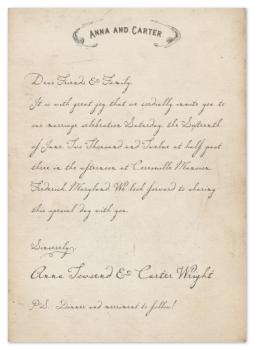 ANNA AND CARTER
Dear Friends & Family,
It is with great joy that we cordially invite you to
our marriage celebration Saturday, the Sixteenth
of June, Two Thousand and Twelve at half past
three in the afternoon at Ceresville Mansion
Frederick, Maryland. We look forward to sharing
this special day with you.
Sincerely,
Anna Towsend & Carter Wright
P.S. Dinner and merriment to follow!